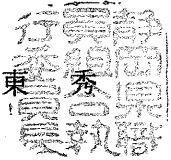 静岡県職
員組合執
行委員長
東 秀